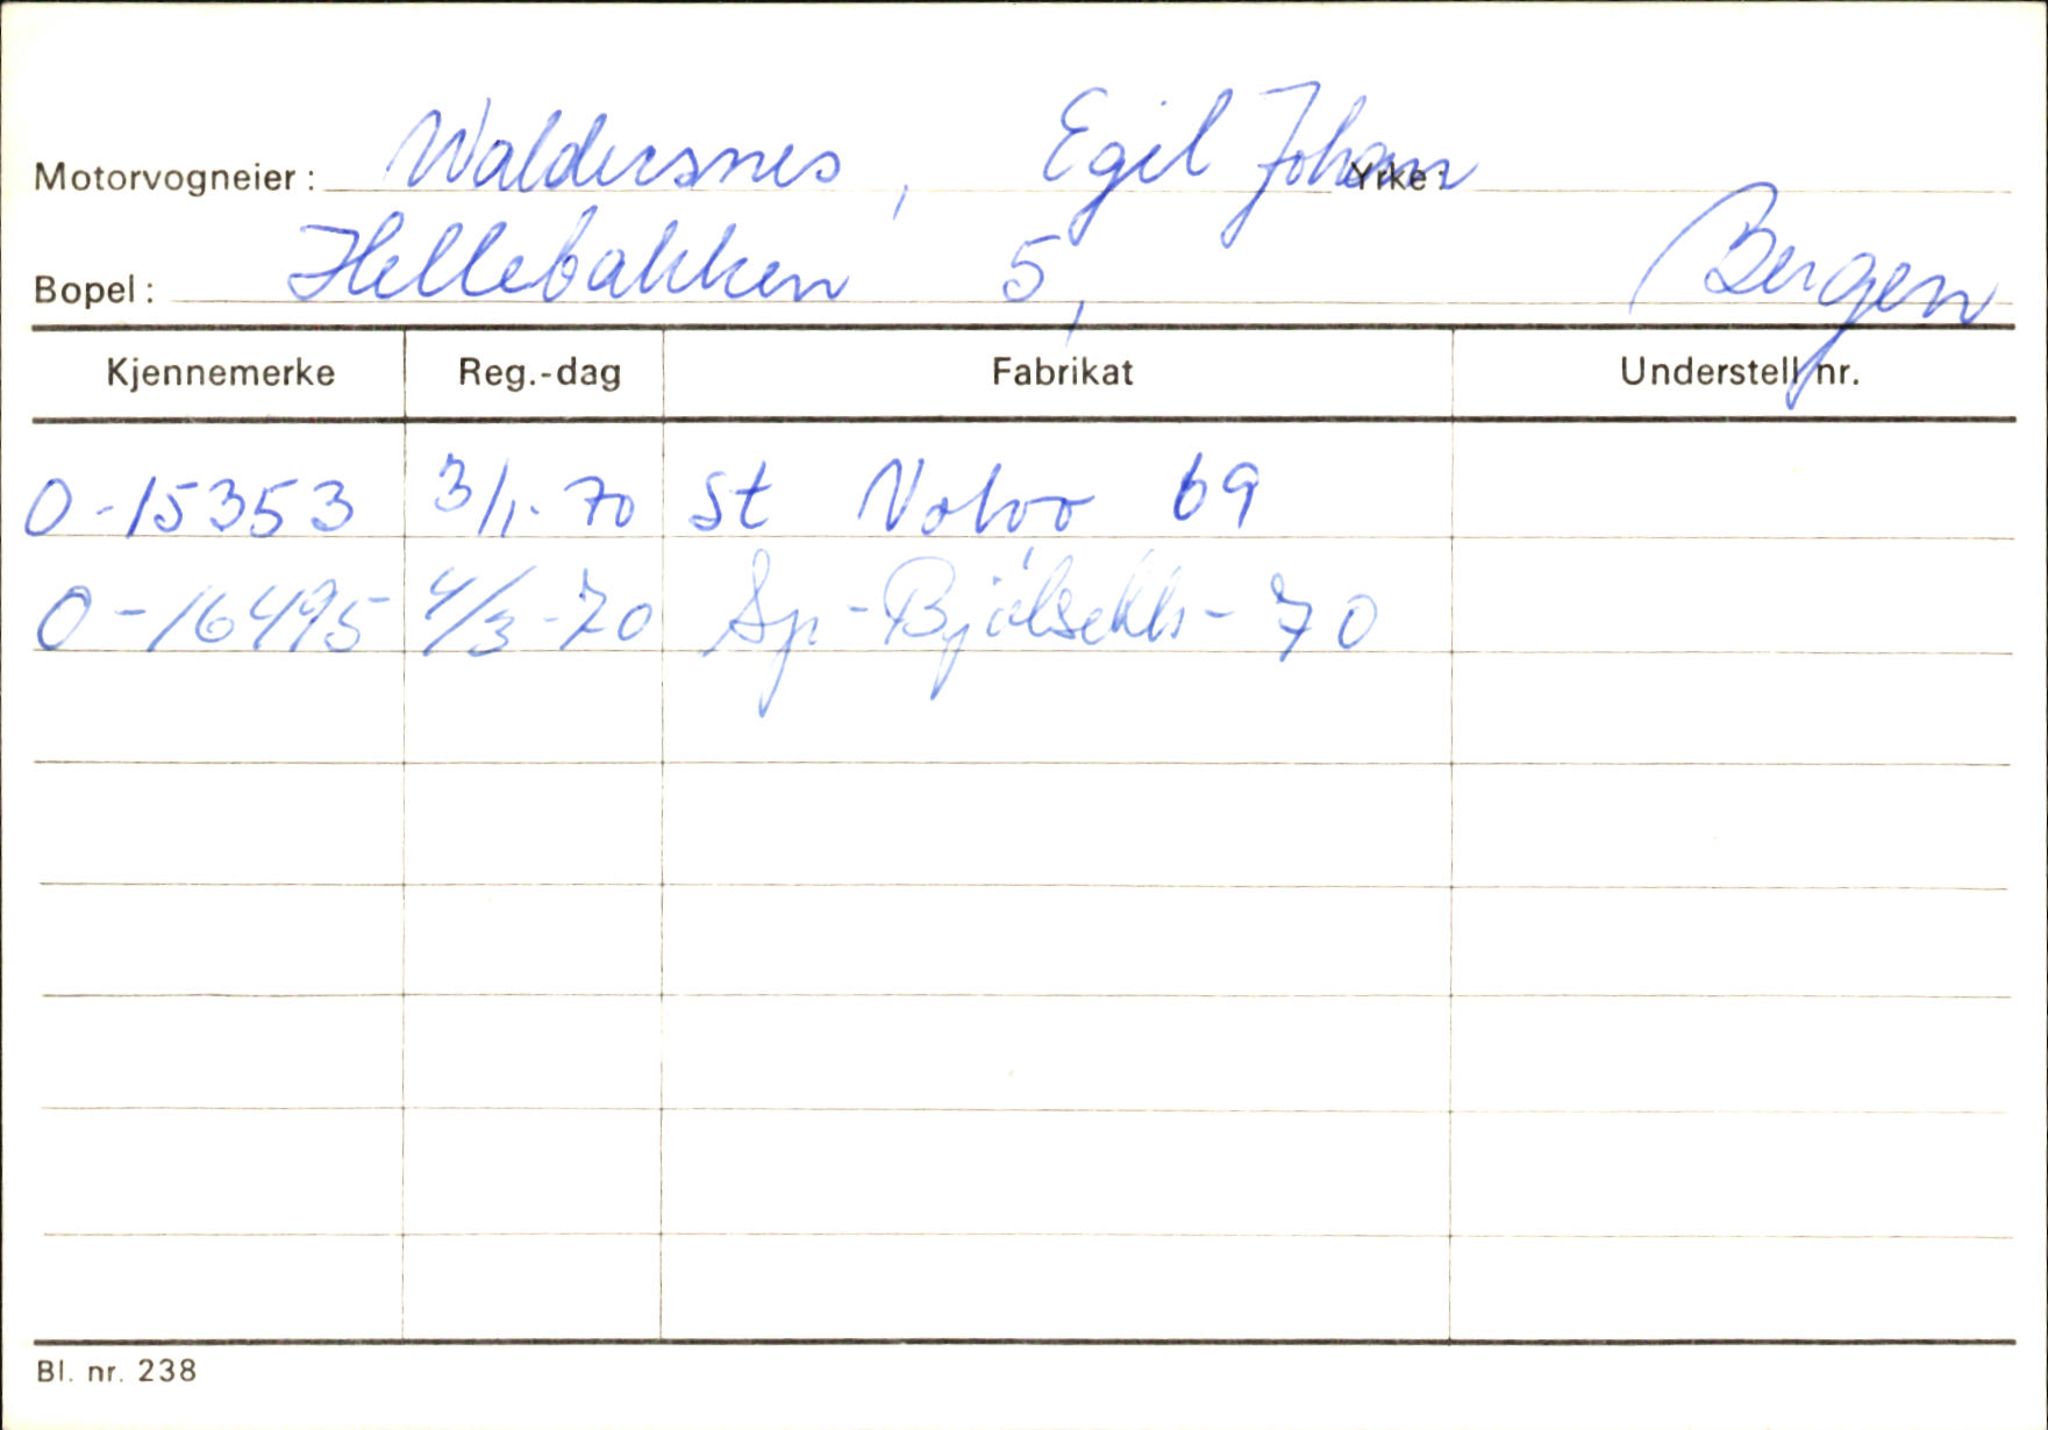 Motorvogneier: Waldersnes, Egil Johan Yrke:
Bopel: Hellebakken 5, Bergen
Kjennemerke Reg.-dag Fabrikat Understell nr.
O-15353 3/1-70 St Volvo 69
O-16495 4/3-70 Sp- 70
Bl. nr. 238